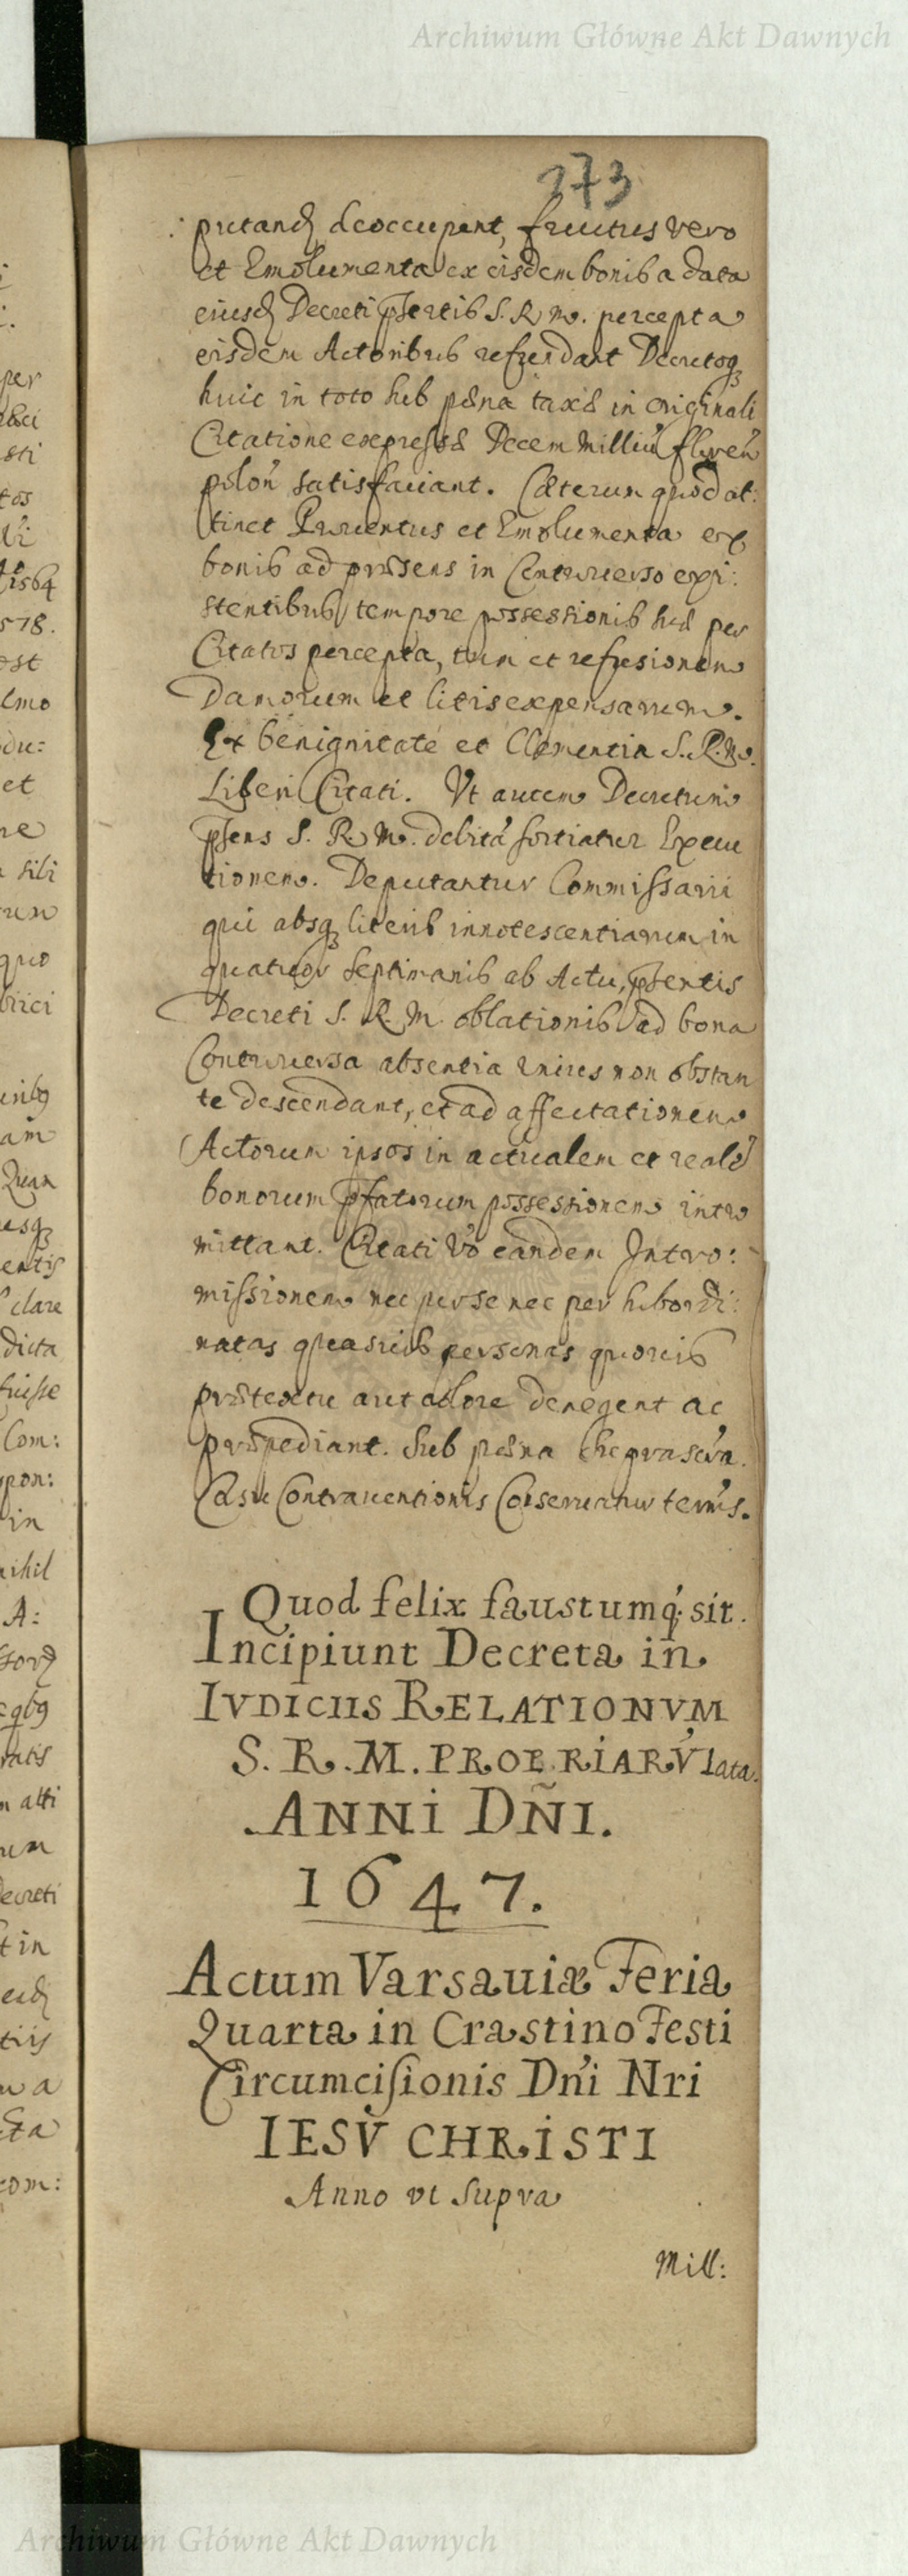 Archiwum Główne Akt Dawnych
273
putand deoccupent, fructus vero
et Emolumenta ex eisdem bonis a data
eiusd Decreti pñtis S. R. M. percepta
eisdem Actoribus refundant Decretoq
huic in toto sub pæna taxæ in originali
Citatione expressæ Decem Milliũ floreñ
poloñ satisfaciant. Cæterum quod at:
tinet Prouentus et Emolumenta ex
bonis ad præsens in Controuerso exi:
stentibus tempore possessionis suæ per
Citatos percepta, tum et refusionem
Damnorum et litis expensarum.
Ex benignitate et Clementia S. R. M.
Liberi Citati. Vt autem Decretum
pñs S. R. M. debitã sortiatur Execu
tionem. Deputantur Commissarii
qui absq literis innotescentiarum in
quatuor Septimanis ab Actu, pñtis
Decreti S. R. M. oblationis ad bona
Controuersa absentia unius non obstan
te descendant, et ad affectationem
Actorum ipsos in actualem et realẽ
bonorum pfatorum possessionem intro
mittant. Citati Vo eandem Intro:
missionem nec per se nec per subordi:
natas quasuis personas quouis
prætextu aut colore denegent ac
præpediant. Sub pæna suprascra.
Casu Contrauentionis Conseruatur termis.
Quod felix faustumq sit.
Incipiunt Decreta in
IVDICIIS RELATIONVM
S. R. M. PROPRIARV̓ lata.
ANNI DÑI.
1647.
Actum Varsauiæ Feria
Quarta in Crastino Festi
Circumcisionis Dni Nri
IESV CHRISTI
Anno vt supra
Mill:
per
osti
tos
1564
578.
est
lmo
du:
et
re
sili
rum
quo
am
Quan
esq
entis
clare
dicta
fuisse
Com:
spon:
in
nihil
A:
ratis
alti
Decreti
t in
com:
Archiwum Główne Akt Dawnych